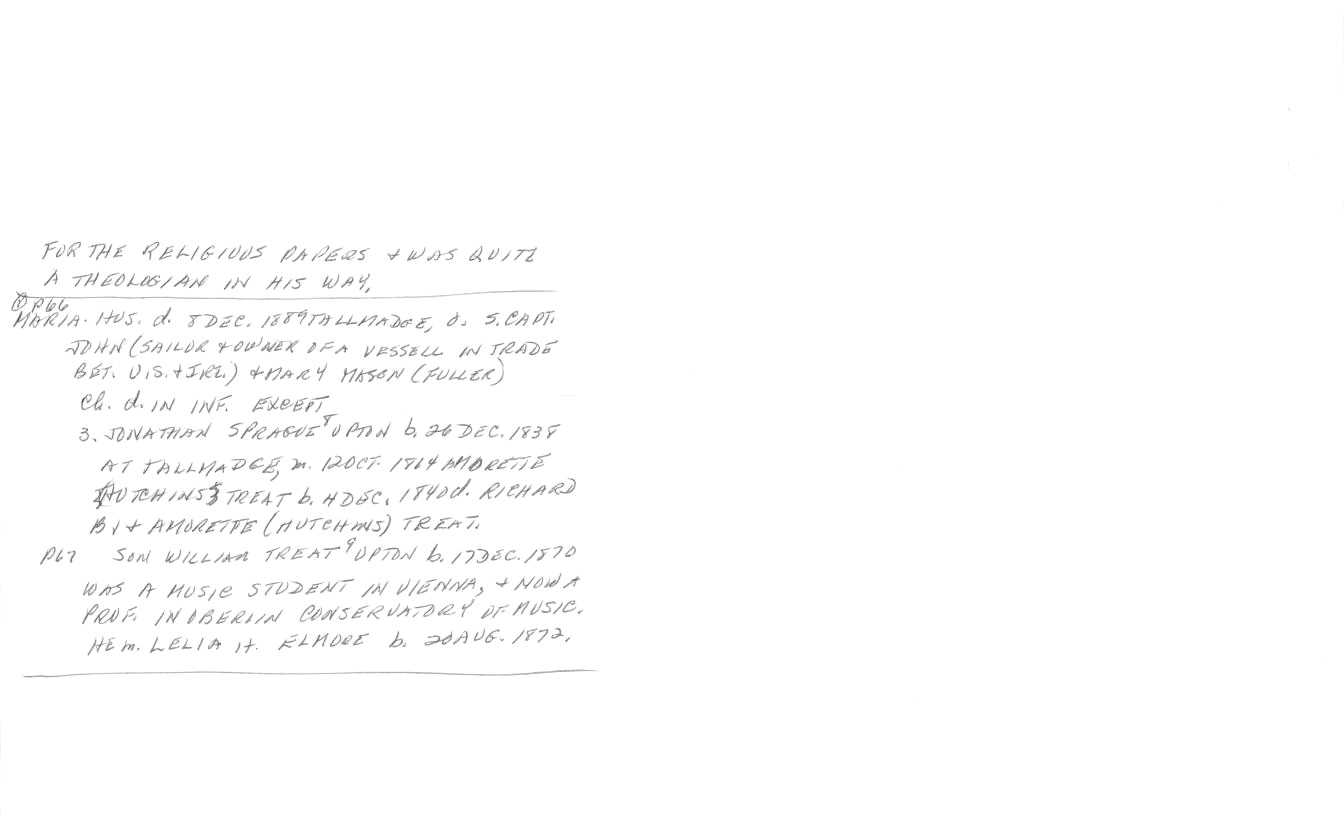 FOR THE RELIGIOUS PAPERS + WAS QUITE
A THEOLOGIAN IN HIS WAY.
P66
MARIA. HUS. d. 8 DEC. 1889 TALLMADGE, O. S. CAPT.
JOHN (SAILOR + OWNER OF A VESSELL IN TRADE
BET. U.S. + IRE.) + MARY MASON (FULLER)
Ch. d. IN INF. EXCEPT
3. JONATHAN SPRAGUE⁸ UPTON b. 26 DEC. 1838
AT TALLMADGE, m. 12 OCT. 1864 AMORETTE
HUTCHINS TREAT b. 4 DEC. 1840 d. RICHARD
B. + AMORETTE (HUTCHINS) TREAT.
P67 SON WILLIAM TREAT⁹ UPTON b. 17 DEC. 1870
WAS A MUSIC STUDENT IN VIENNA, + NOW A
PROF. IN OBERLIN CONSERVATORY OF MUSIC.
HE m. LELIA H. ELMORE b. 20 AUG. 1872.